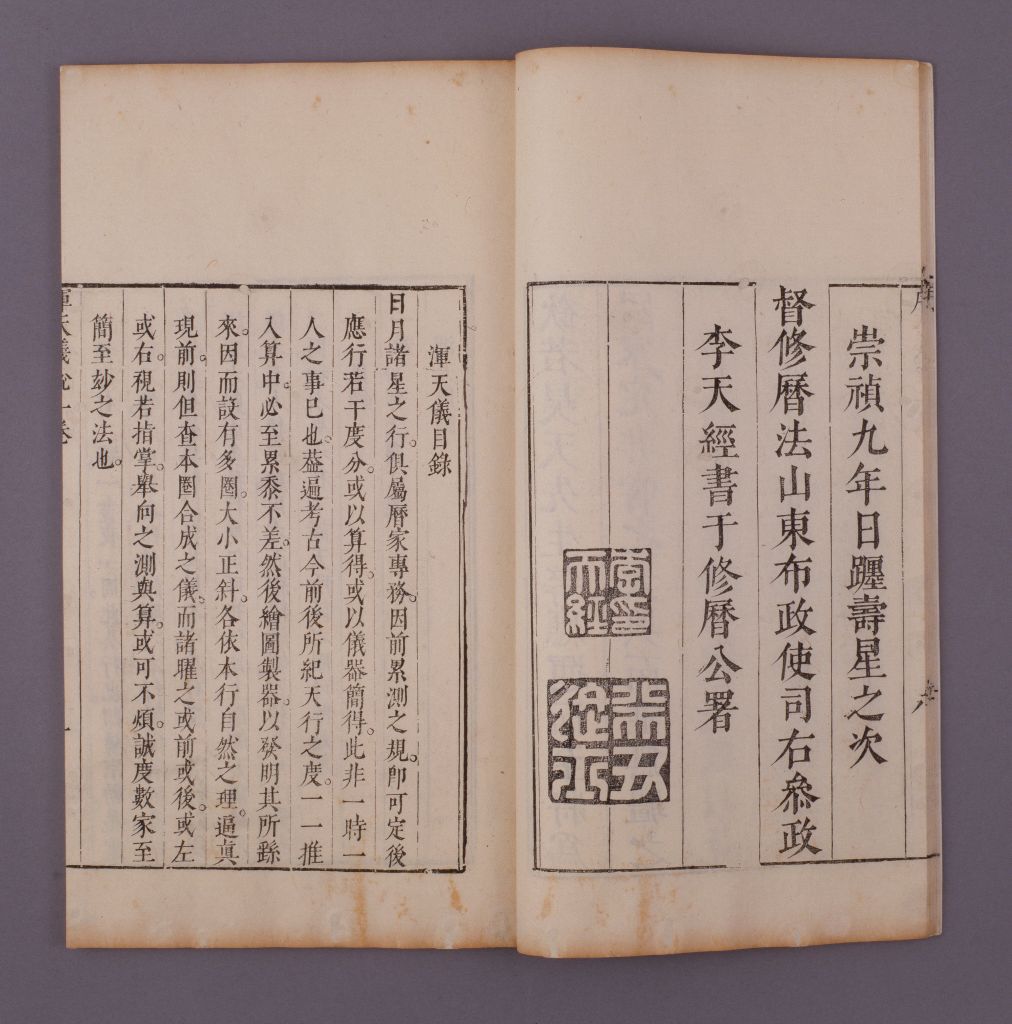 崇禎九年日躔壽星之次
督修曆法山東布政使司右叅政
李天經書于修曆公署
李天經印
渾天儀目錄
日月諸星之行。俱屬曆家專務。因前累測之規。卽可定後
應行若干度分。或以算得。或以儀器簡得。此非一時一
人之事已也。葢遍考古今前後所紀天行之度。一一推
入算中。必至累黍不差。然後繪圖製器。以發明其所繇
來。因而設有多圈。大小正斜。各依本行自然之理。逼眞
現前。則但查本圈合成之儀。而諸曜之或前或後。或左
或右。視若指掌。舉向之測與算。或可不煩。誠度數家至
簡至玅之法也。
渾天儀說一卷
一